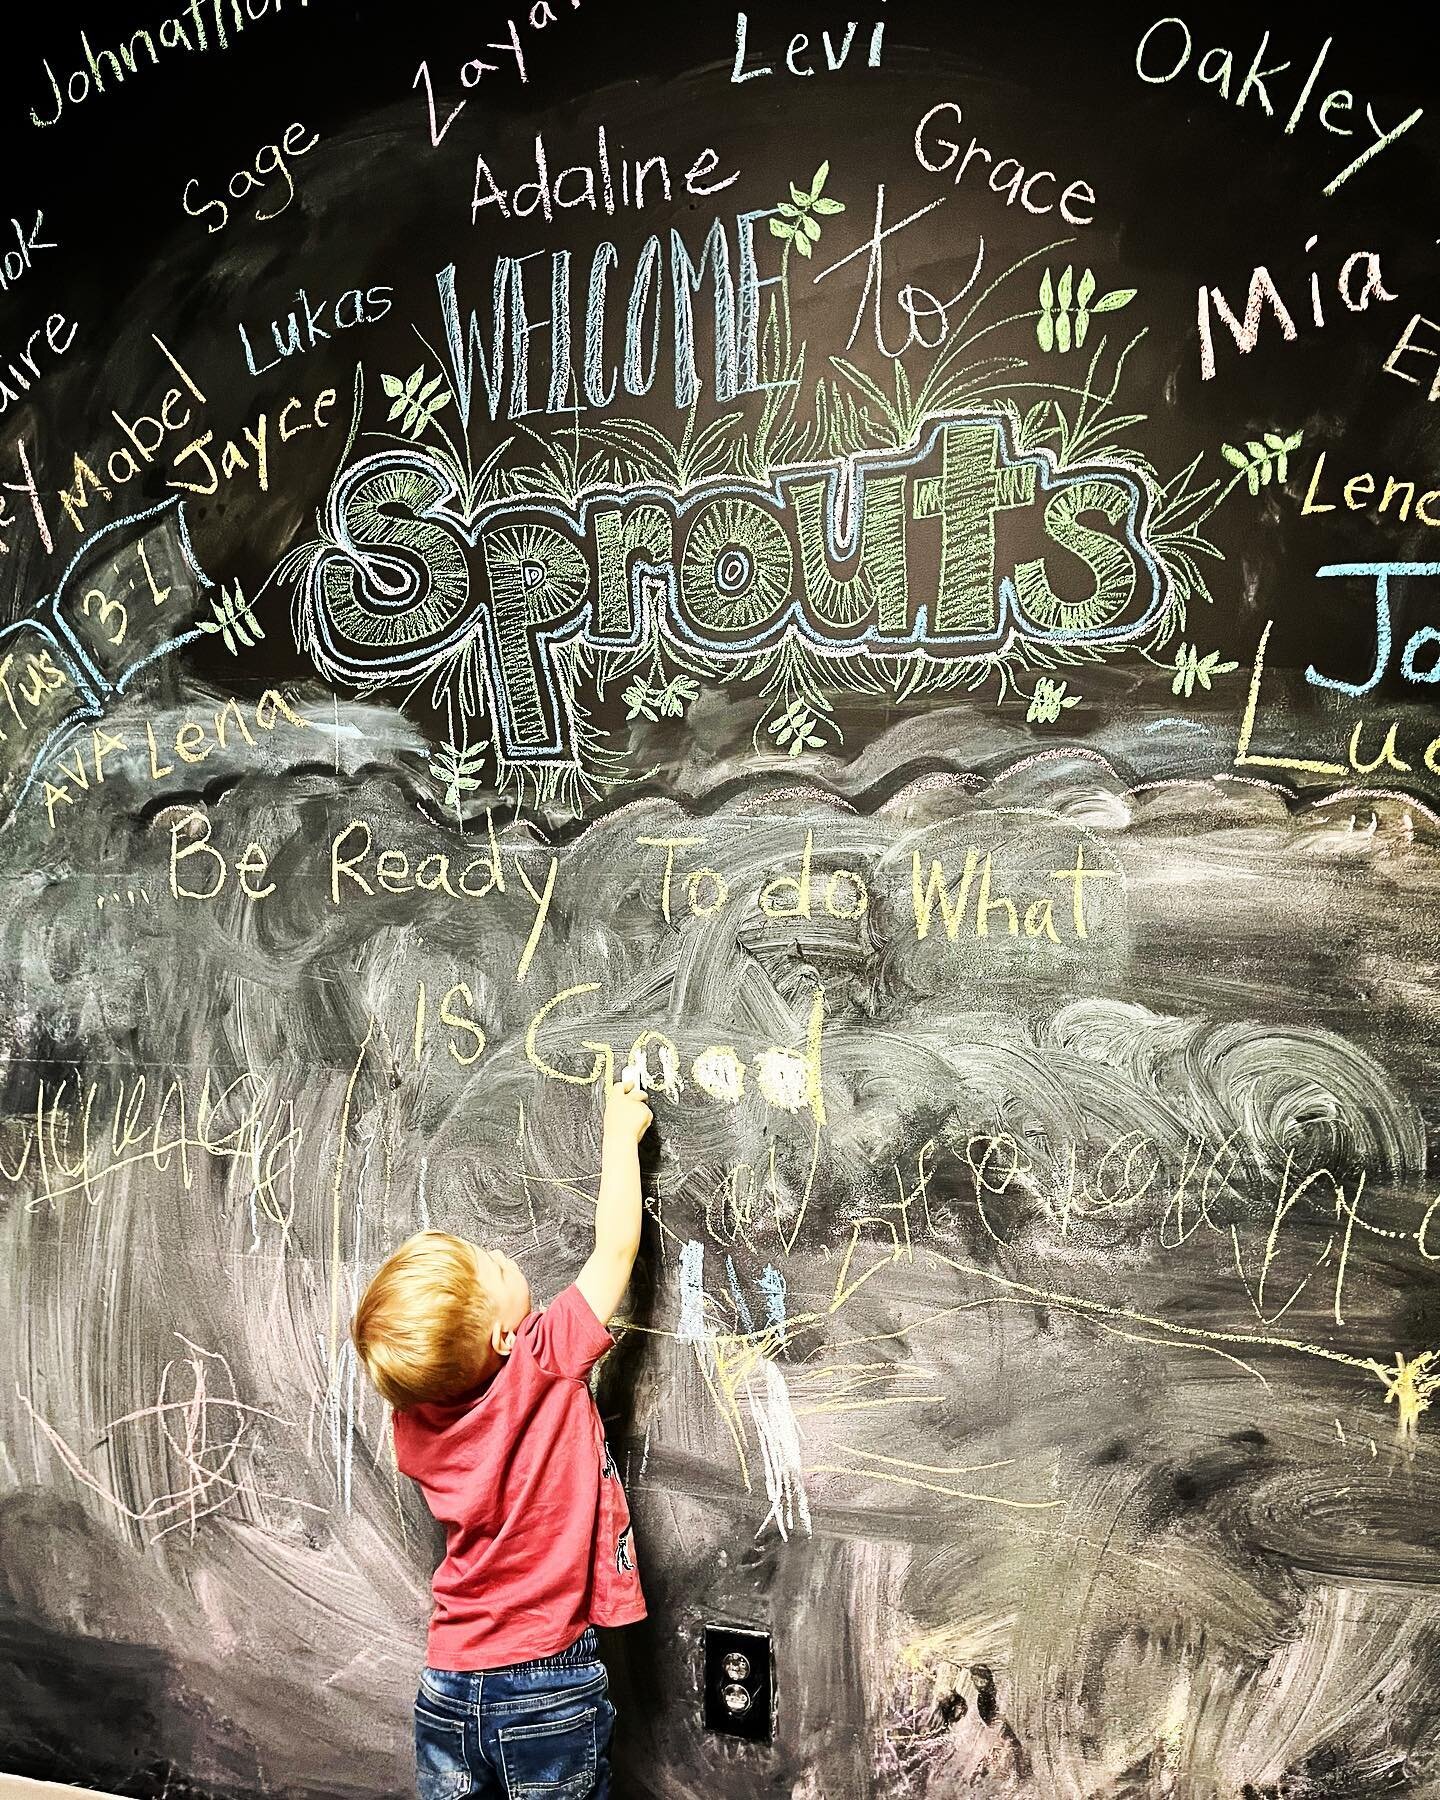 Johnathon
Levi
Oakley
Sage
Adaline
Grace
WELCOME to
Mia
Lukas
Mabel
Jayce
Sprouts
3:1
Tus
AVA
Lena
..... Be Ready To do What
is Good